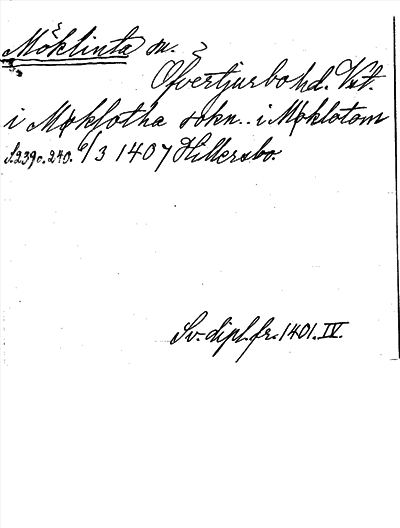 Möklinta sn.
Ofvertjurbo hd. Vst.
i Møkføtha sokn.. i Møklotom
S. 239 o. 240. 6/3 1407 Hillersbo.
Sv. dipl. fr. 1401. IV.